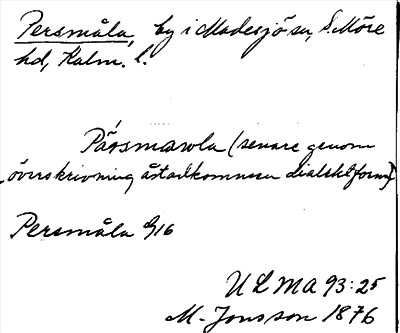 Persmåla, by i Madesjö sn, S. Möre
hd, Kalm. l.
Pärsmawla (senare genom
överskrivning åstadkommen dialektform)
Persmåla G16
ULMA 93:25
M. Jonsson 1876